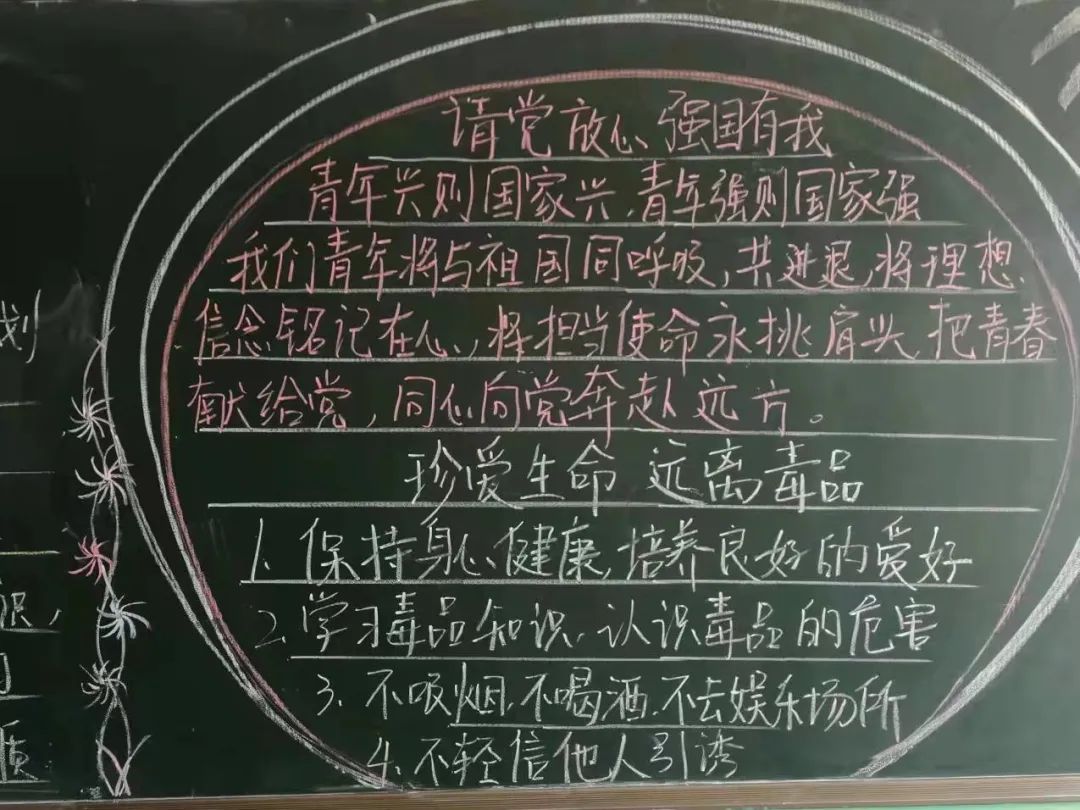 请党放心 强国有我
青年兴则国家兴,青年强则国家强
我们青年将与祖国同呼吸,共进退,将理想
信念铭记在心,将担当使命永挑肩头,把青春
献给党,同心向党奔赴远方。
珍爱生命 远离毒品
1、保持身心健康,培养良好的爱好
2、学习毒品知识,认识毒品的危害
3、不吸烟,不喝酒,不去娱乐场所
4、不轻信他人引诱
划
识,